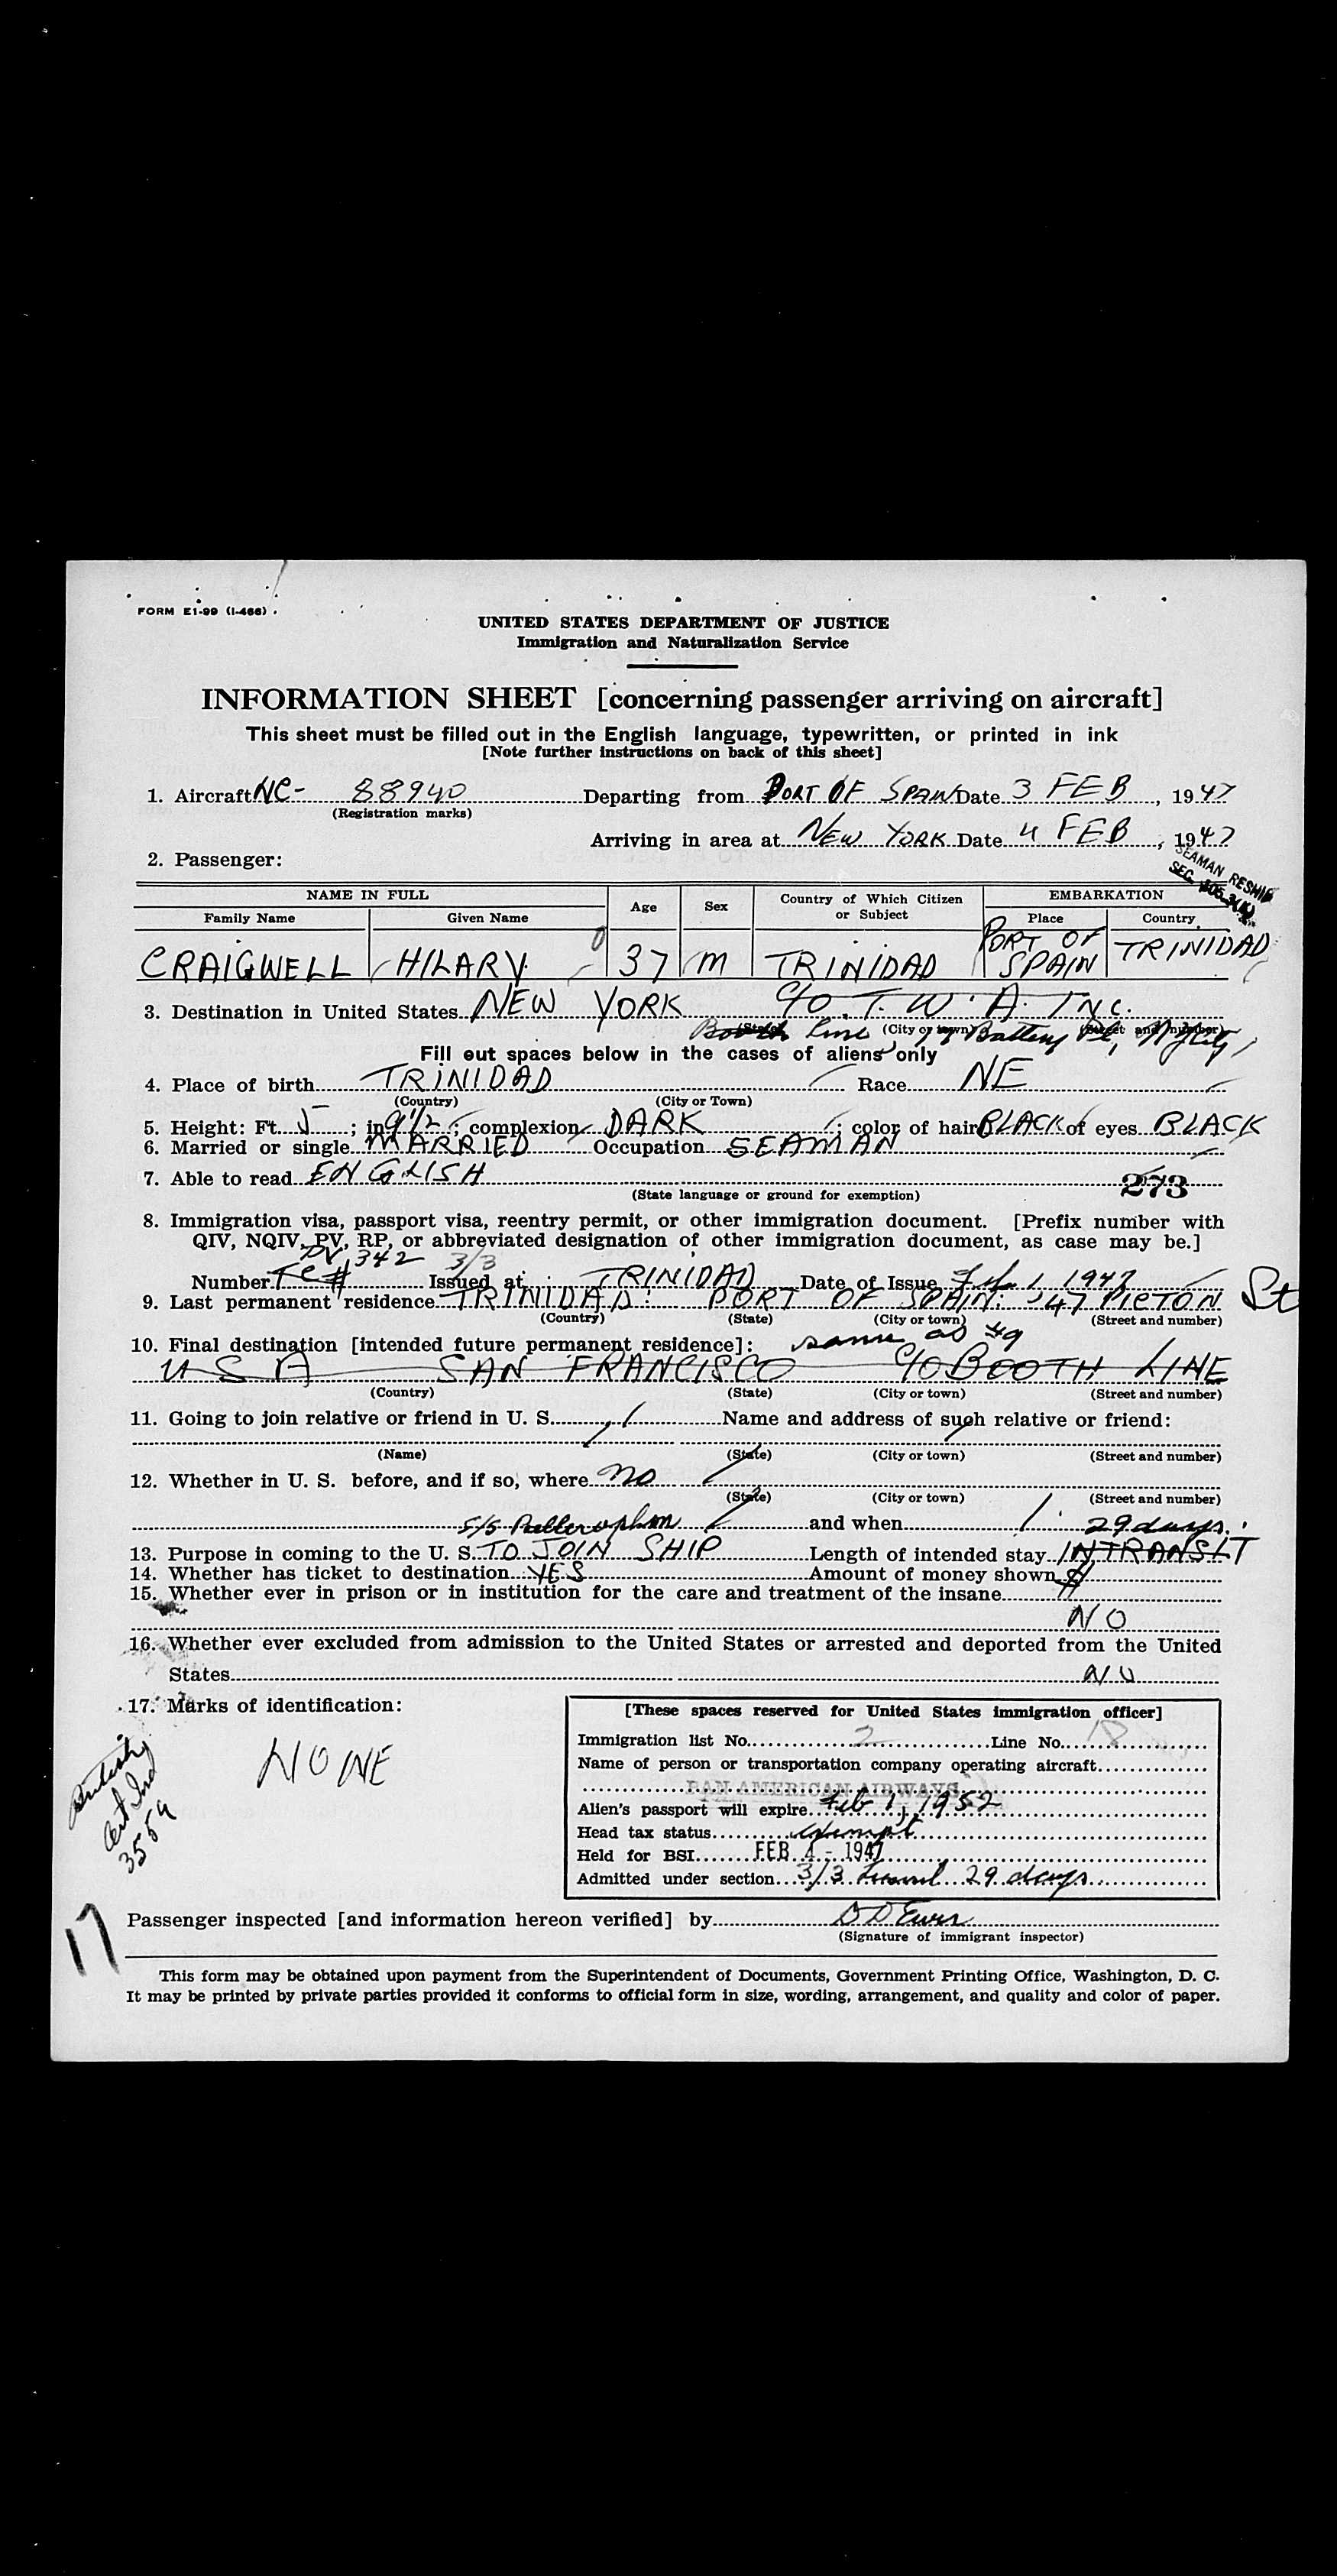 FORM E1-99 (I-466)
UNITED STATES DEPARTMENT OF JUSTICE
Immigration and Naturalization Service
INFORMATION SHEET [concerning passenger arriving on aircraft]
This sheet must be filled out in the English language, typewritten, or printed in ink
[Note further instructions on back of this sheet]
1. Aircraft NC- 88940 Departing from PORT OF SPAIN Date 3 FEB, 1947
(Registration marks)
Arriving in area at NEW YORK Date 4 FEB, 1947
2. Passenger:
SEAMAN RESHIP
SEC.
NAME IN FULL Age Sex Country of Which Citizen or Subject EMBARKATION
Family Name Given Name Place Country
CRAIGWELL HILARY 37 M TRINIDAD PORT OF SPAIN TRINIDAD
3. Destination in United States NEW YORK C/O T. W. A. INC.
(State) (City or town) (Street and number)
Booth Line 17 Battery Pl, NYCity
Fill out spaces below in the cases of aliens only
4. Place of birth TRINIDAD Race NE
(Country) (City or Town)
5. Height: Ft. 5; in. 9 1/2; complexion DARK; color of hair BLACK of eyes BLACK
6. Married or single MARRIED Occupation SEAMAN
7. Able to read ENGLISH 273
(State language or ground for exemption)
8. Immigration visa, passport visa, reentry permit, or other immigration document. [Prefix number with
QIV, NQIV, PV, RP, or abbreviated designation of other immigration document, as case may be.]
PV 342 3/3
Number TC# Issued at TRINIDAD Date of Issue Feb 1 1947
9. Last permanent residence TRINIDAD: PORT OF SPAIN: 47 PICTON St
(Country) (State) (City or town) (Street and number)
10. Final destination [intended future permanent residence]: same as #9
U S A SAN FRANCISCO C/O BOOTH LINE
(Country) (State) (City or town) (Street and number)
11. Going to join relative or friend in U. S. Name and address of such relative or friend:
(Name) (State) (City or town) (Street and number)
12. Whether in U. S. before, and if so, where no
(State) (City or town) (Street and number)
S/S and when 29 days.
13. Purpose in coming to the U. S. TO JOIN SHIP Length of intended stay INTRANSIT
14. Whether has ticket to destination YES Amount of money shown $
15. Whether ever in prison or in institution for the care and treatment of the insane
NO
16. Whether ever excluded from admission to the United States or arrested and deported from the United
States NO
17. Marks of identification:
NONE
British
Cert Ind
3559
17
[These spaces reserved for United States immigration officer]
Immigration list No. 2 Line No. 18
Name of person or transportation company operating aircraft
PAN AMERICAN AIRWAYS
Alien's passport will expire Feb 1, 1952
Head tax status exempt
Held for BSI FEB 4 - 1947
Admitted under section 3/3 29 days
Passenger inspected [and information hereon verified] by
(Signature of immigrant inspector)
This form may be obtained upon payment from the Superintendent of Documents, Government Printing Office, Washington, D. C.
It may be printed by private parties provided it conforms to official form in size, wording, arrangement, and quality and color of paper.